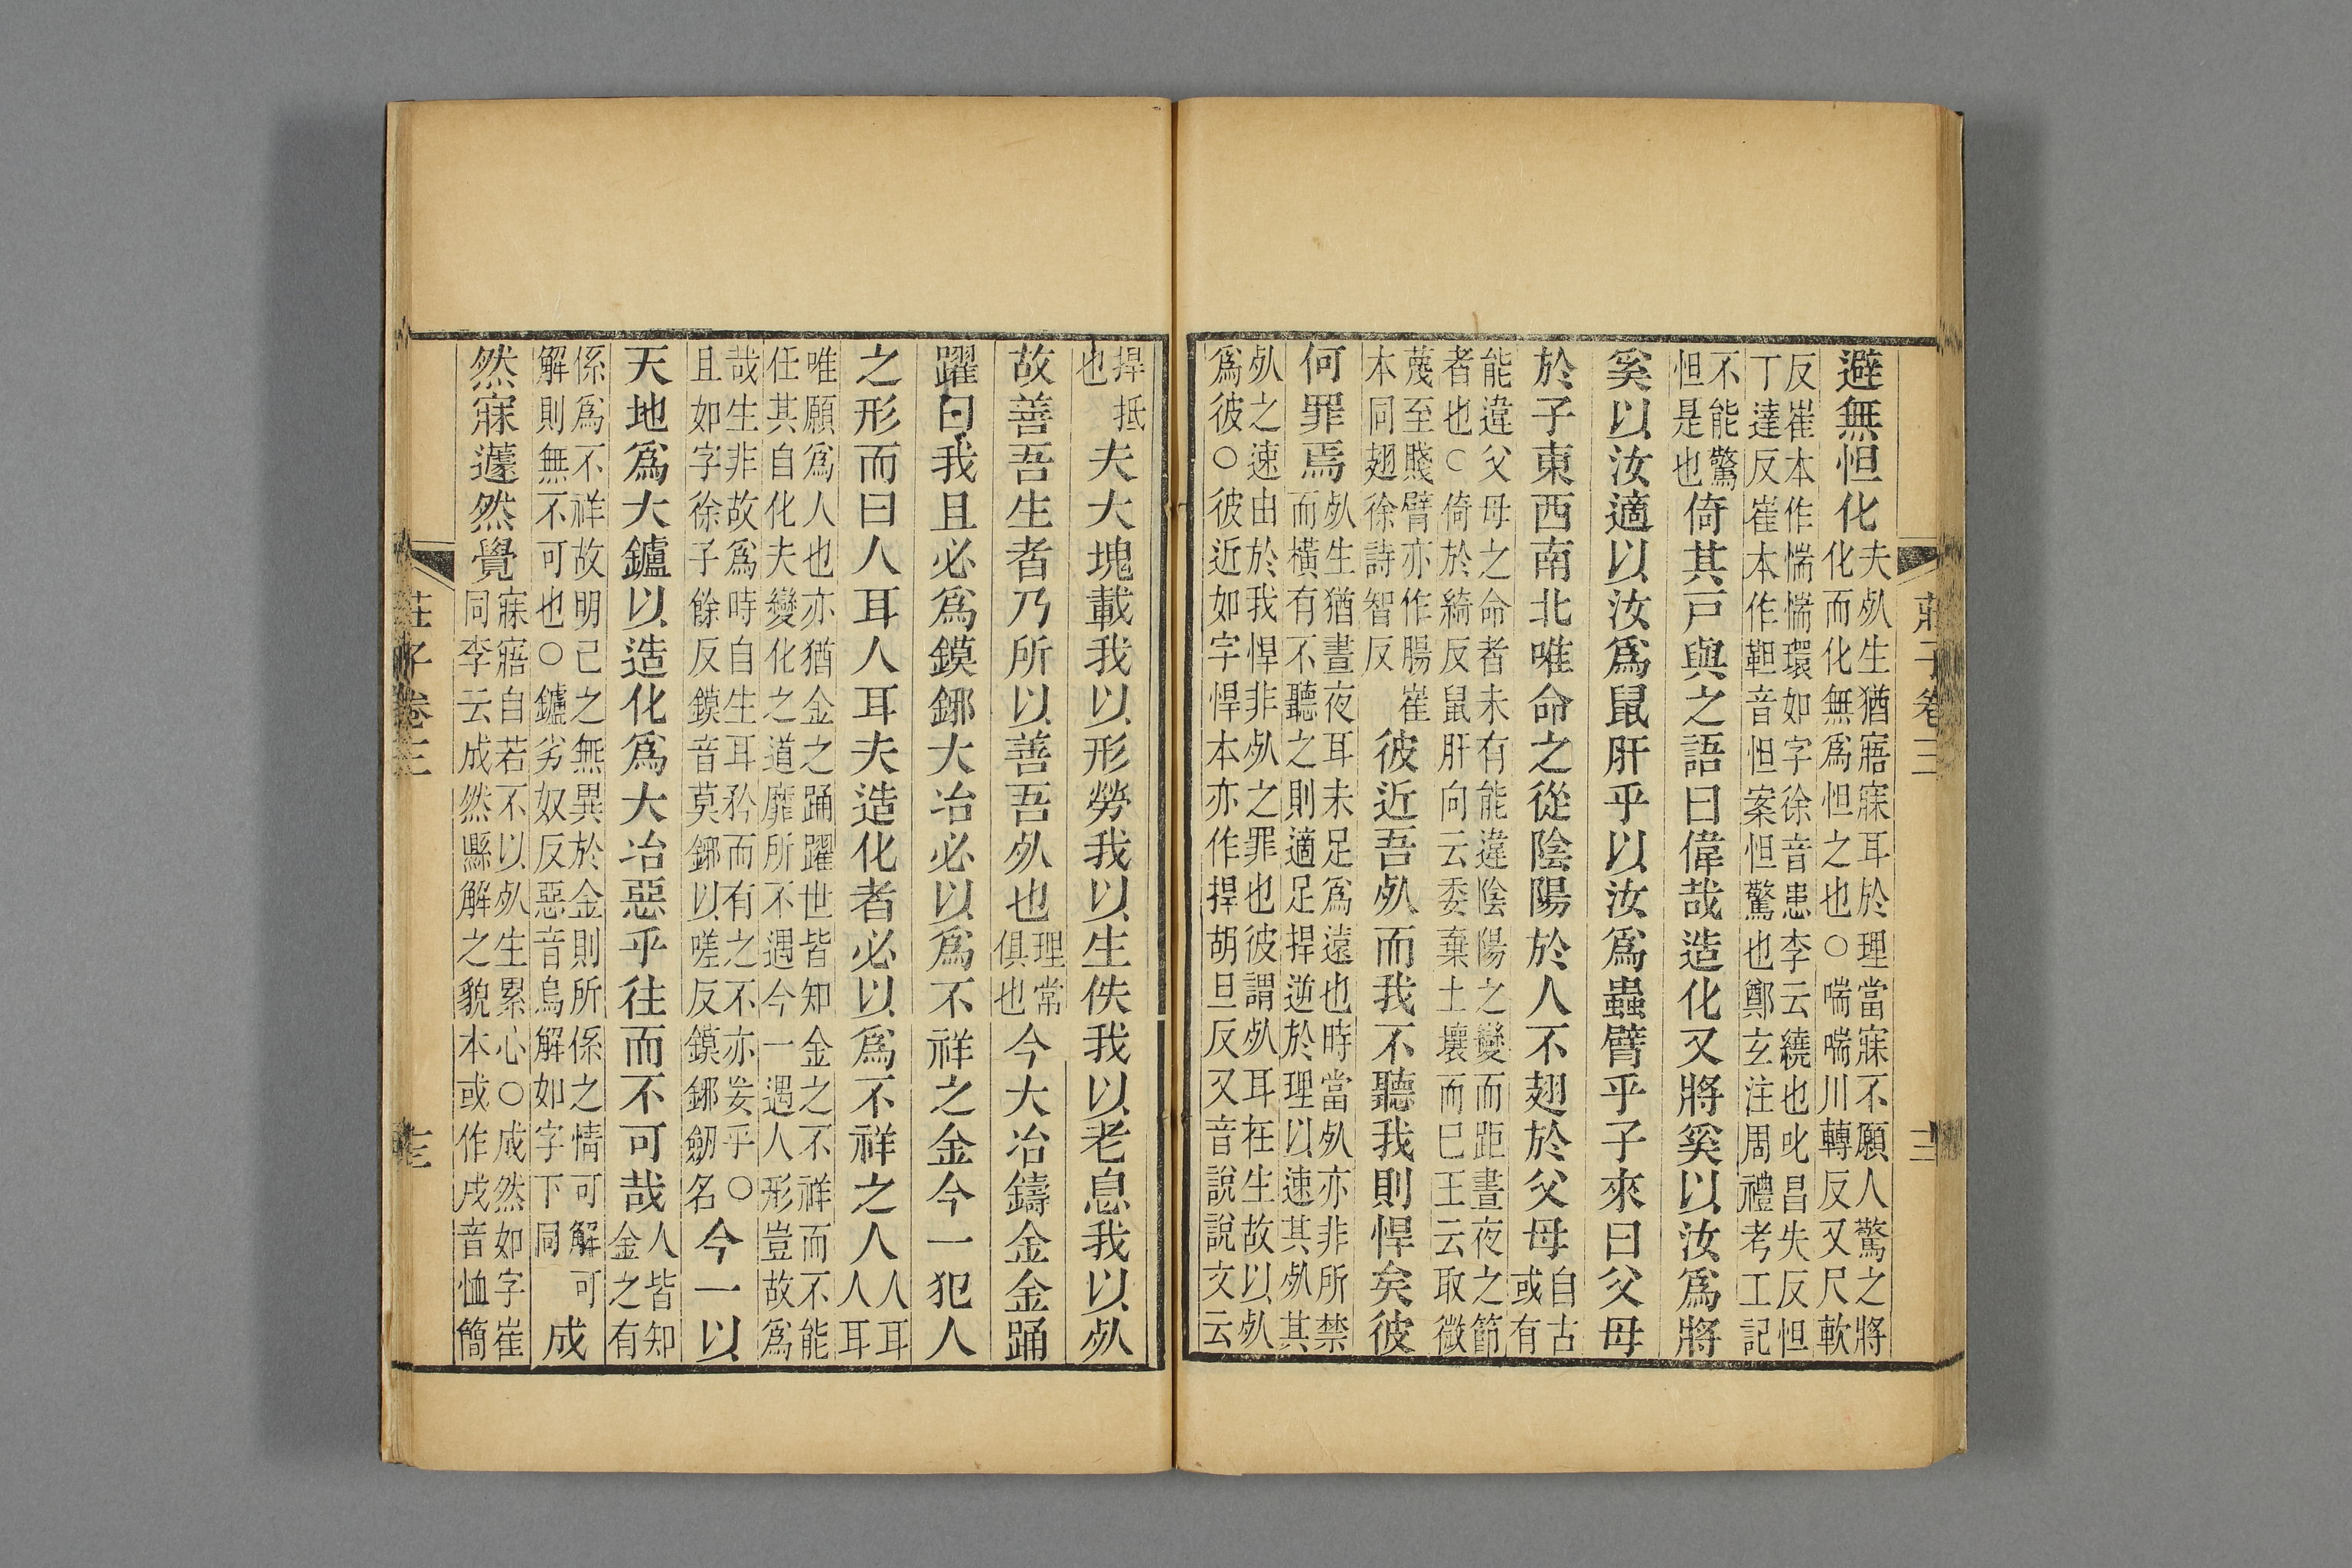 莊子卷三　三
避無怛化夫死生猶寤寐耳於理當寐不願人驚之將
化而化無爲怛之也○喘喘川轉反又尺軟
反崔本作惴惴環如字徐音患李云繞也叱昌失反怛
丁達反崔本作靼音怛案怛驚也鄭玄注周禮考工記
不能驚
怛是也倚其戶與之語曰偉哉造化又將奚以汝爲將
奚以汝適以汝爲鼠肝乎以汝爲蟲臂乎子來曰父母
於子東西南北唯命之從陰陽於人不翅於父母自古
或有
能違父母之命者未有能違陰陽之變而距晝夜之節
者也○倚於綺反鼠肝向云委棄土壤而已王云取微
蔑至賤臂亦作腸崔
本同翅徐詩智反彼近吾死而我不聽我則悍矣彼
何罪焉死生猶晝夜耳未足爲遠也時當死亦非所禁
而橫有不聽之則適足捍逆於理以速其死其
死之速由於我悍非死之罪也彼謂死耳在生故以死
爲彼○彼近如字悍本亦作捍胡旦反又音說說文云
捍抵
也夫大塊載我以形勞我以生佚我以老息我以死
故善吾生者乃所以善吾死也理常
俱也今大冶鑄金金踊
躍曰我且必爲鏌鋣大冶必以爲不祥之金今一犯人
之形而曰人耳人耳夫造化者必以爲不祥之人人耳
人耳
唯願爲人也亦猶金之踊躍世皆知金之不祥而不能
任其自化夫變化之道靡所不遇今一遇人形豈故爲
哉生非故爲時自生耳矜而有之不亦妄乎○
且如字徐子餘反鏌音莫鋣以嗟反鏌鋣劒名今一以
天地爲大鑪以造化爲大冶惡乎往而不可哉人皆知
金之有
係爲不祥故明己之無異於金則所係之情可解可
解則無不可也○鑪劣奴反惡音烏解如字下同成
然寐蘧然覺寐寤自若不以死生累心○成然如字崔
同李云成然縣解之貌本或作戌音恤簡
莊子卷三　三